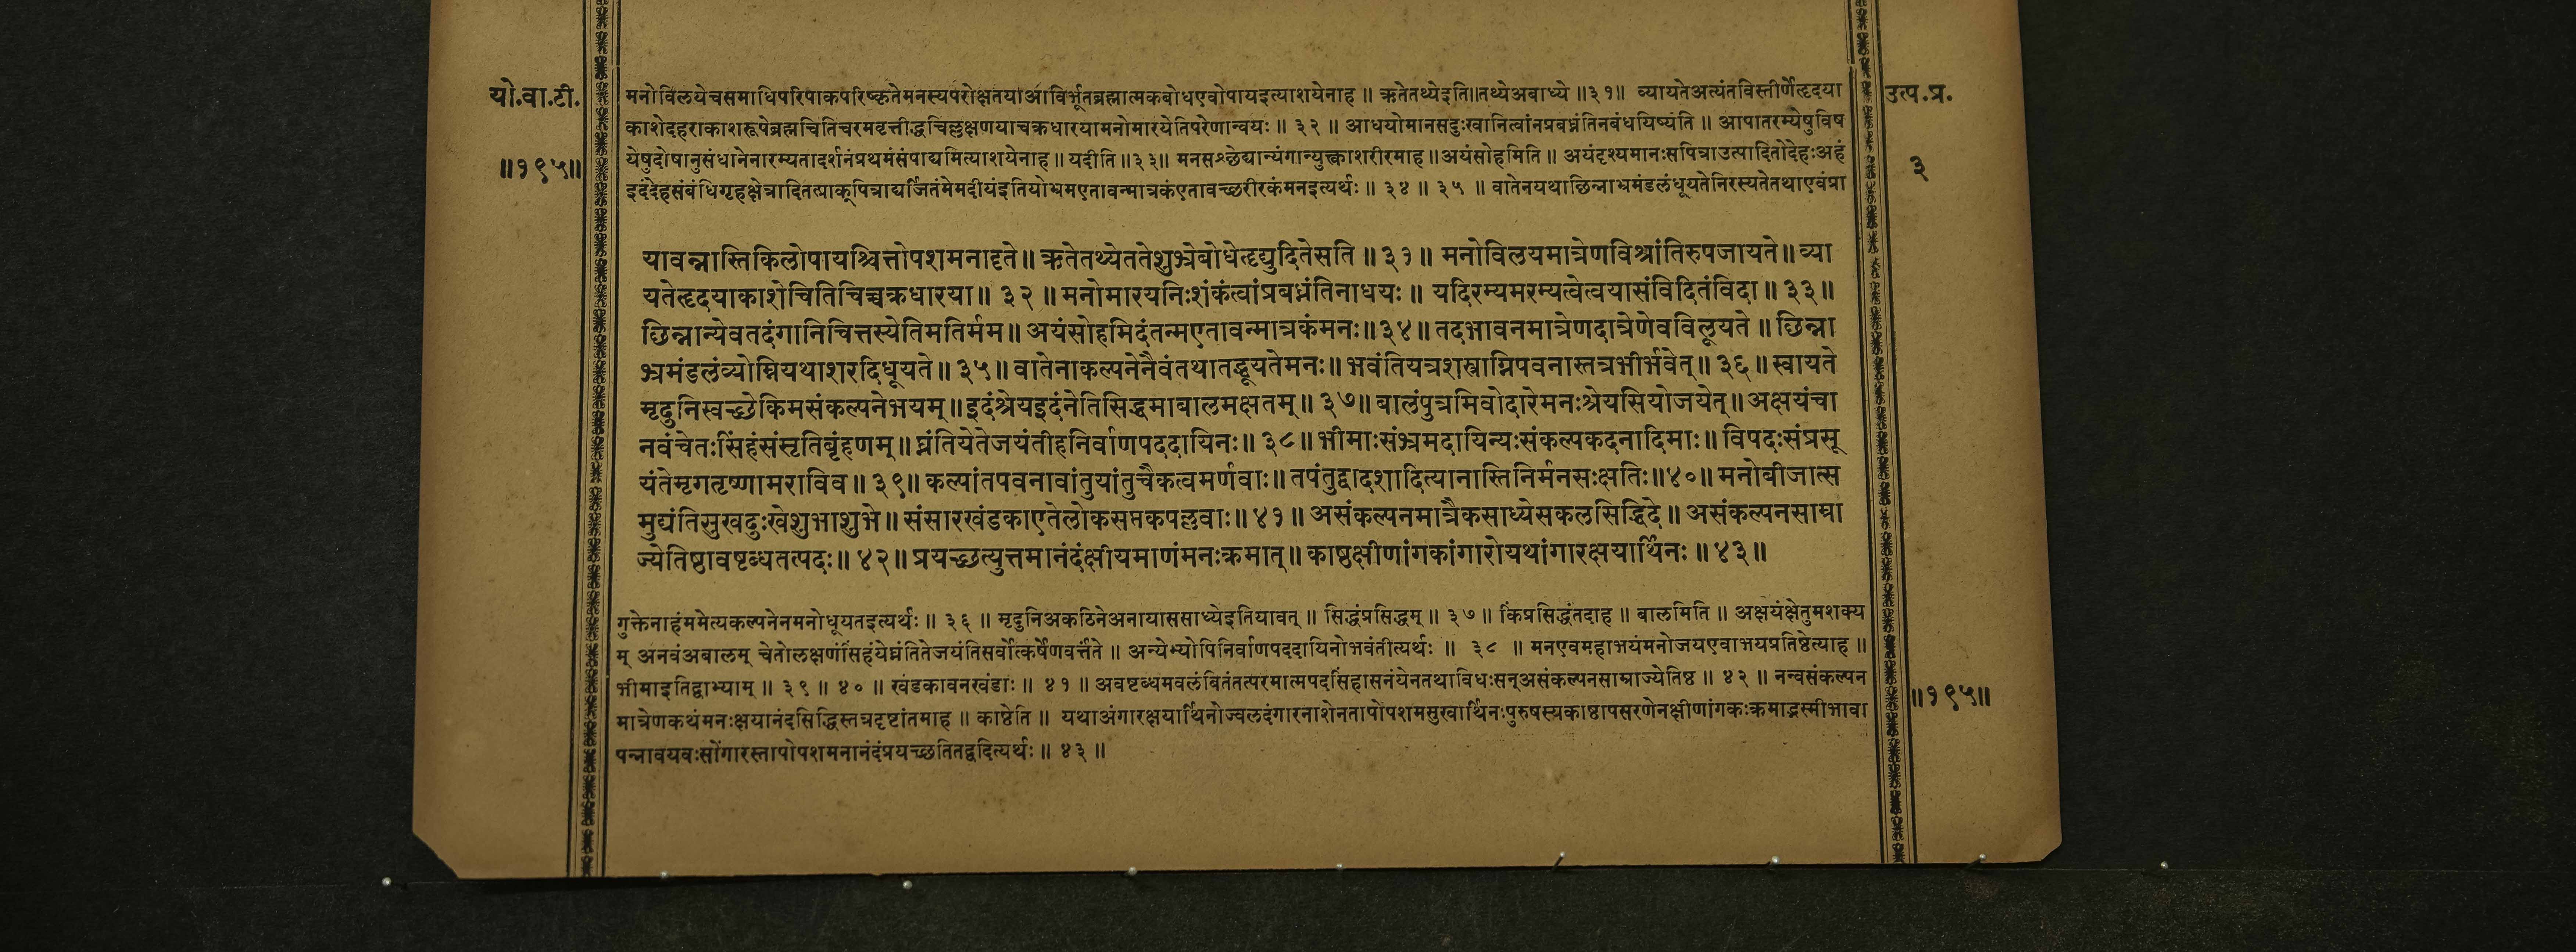 यो.वा.टी.
॥१९५॥
मनोविलयेचसमाधिपरिपाकपरिष्कृतेमनस्यपरोक्षतयाआविर्भूतब्रह्मात्मकबोधएवोपायइत्याशयेनाह ॥ ऋतेतथ्येइति॥तथ्येअबाध्ये ॥३१॥ व्यायतेअत्यंतविस्तीर्णेहृदया
काशेदहराकाशरूपेब्रह्मचितिचरमवृत्तीद्धचिल्लक्षणयाचक्रधारयामनोमारयेतिपरेणान्वयः ॥ ३२ ॥ आधयोमानसदुःखानित्वांनप्रबध्नंतिनबंधयिष्यंति ॥ आपातरम्येषुविष
येषुदोषानुसंधानेनारम्यतादर्शनंप्रथमंसंपाद्यमित्याशयेनाह ॥ यदीति ॥३३॥ मनसश्छेद्यान्यंगान्युक्त्वाशरीरमाह ॥अयंसोहमिति ॥ अयंदृश्यमानःसपित्राउत्पादितोदेहःअहं
इदंदेहसंबंधिगृहक्षेत्रादितत्प्राक्पित्राद्यर्जितंमेमदीयंइतियोभ्रमएतावन्मात्रकंएतावच्छरीरकंमनइत्यर्थः ॥ ३४ ॥ ३५ ॥ वातेनयथाछिन्नाभ्रमंडलंधूयतेनिरस्यतेतथाएवंप्रा
यावन्नास्तिकिलोपायश्चित्तोपशमनादृते॥ ऋतेतथ्येततेशुभ्रेबोधेहृद्युदितेसति ॥ ३१॥ मनोविलयमात्रेणविश्रांतिरुपजायते॥ व्या
यतेहृदयाकाशेचितिचिच्चक्रधारया॥ ३२ ॥ मनोमारयनिःशंकंत्वांप्रबध्नंतिनाधयः ॥ यदिरम्यमरम्यत्वेत्वयासंविदितंविदा ॥ ३३॥
छिन्नान्येवतदंगानिचित्तस्येतिमतिर्मम॥ अयंसोहमिदंतन्मएतावन्मात्रकंमनः॥३४॥ तदभावनमात्रेणदात्रेणेवविलूयते ॥ छिन्ना
भ्रमंडलंव्योम्नियथाशरदिधूयते॥ ३५॥ वातेनाकल्पनेनैवंतथातद्धूयतेमनः॥ भवंतियत्रशस्त्राग्निपवनास्तत्रभीर्भवेत्॥ ३६॥ स्वायते
मृदुनिस्वच्छेकिमसंकल्पनेभयम्॥ इदंश्रेयइदंनेतिसिद्धमाबालमक्षतम्॥ ३७॥ बालंपुत्रमिवोदारेमनःश्रेयसियोजयेत्॥ अक्षयंचा
नवंचेतःसिंहंसंसृतिबृंहणम्॥ घ्नंतियेतेजयंतीहनिर्वाणपददायिनः॥ ३८॥ भीमाःसंभ्रमदायिन्यःसंकल्पकदनादिमाः॥ विपदःसंप्रसू
यंतेमृगतृष्णामराविव॥ ३९॥ कल्पांतपवनावांतुयांतुचैकत्वमर्णवाः॥ तपंतुद्वादशादित्यानास्तिनिर्मनसःक्षतिः॥४०॥ मनोबीजात्स
मुद्यंतिसुखदुःखेशुभाशुभे॥ संसारखंडकाएतेलोकसप्तकपल्लवाः॥ ४१॥ असंकल्पनमात्रैकसाध्येसकलसिद्धिदे॥ असंकल्पनसाम्रा
ज्येतिष्ठावष्टब्धतत्पदः॥ ४२॥ प्रयच्छत्युत्तमानंदंक्षीयमाणंमनःक्रमात्॥ काष्ठक्षीणांगकांगारोयथांगारक्षयार्थिनः ॥ ४३॥
गुक्तेनाहंममेत्यकल्पनेनमनोधूयतइत्यर्थः ॥ ३६ ॥ मृदुनिअकठिनेअनायाससाध्येइतियावत् ॥ सिद्धंप्रसिद्धम् ॥ ३७ ॥ किंप्रसिद्धंतदाह ॥ बालमिति ॥ अक्षयंक्षेतुमशक्य
म् अनवंअबालम् चेतोलक्षणंसिंहंयेघ्नंतितेजयंतिसर्वोत्कर्षेणवर्त्तंते ॥ अन्येभ्योपिनिर्वाणपददायिनोभवंतीत्यर्थः ॥ ३८ ॥ मनएवमहाभयंमनोजयएवाभयप्रतिष्ठेत्याह ॥
भीमाइतिद्वाभ्याम् ॥ ३९ ॥ ४० ॥ खंडकावनखंडाः ॥ ४१ ॥ अवष्टब्धमवलंबितंतत्परमात्मपदसिंहासनंयेनतथाविधःसन्असंकल्पनसाम्राज्येतिष्ठ ॥ ४२ ॥ नन्वसंकल्पन
मात्रेणकथंमनःक्षयानंदसिद्धिस्तत्रदृष्टांतमाह ॥ काष्ठेति ॥ यथाअंगारक्षयार्थिनोज्वलदंगारनाशेनतापोपशमसुखार्थिनःपुरुषस्यकाष्ठापसरणेनक्षीणांगकःक्रमाद्भस्मीभावा
पन्नावयवःसोंगारस्तापोपशमनानंदंप्रयच्छतितद्वदित्यर्थः ॥ ४३ ॥
उत्प.प्र.
३
॥१९५॥